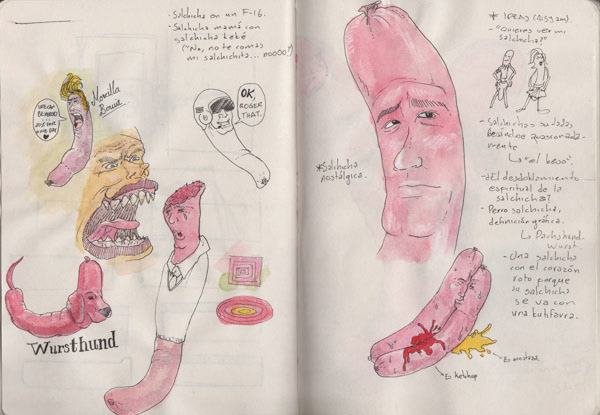 -Salchicha en un F-16.
-Salchicha mamá con
salchicha bebé
("No, no te comas
mi salchichita... nooo!")
Morcilla
Bowie
WE CAN
BE HEROES
JUST FOR
ONE DAY
OK,
ROGER
THAT.
Wursthund
*Salchicha
nostálgica.
* IDEAS (Disgam).
- "Quieres ver mi
salchicha?"
- Salchichas sudadas
besándose apasionada-
mente
"el beso".
-¿El desdoblamiento
espiritual de la
salchicha?
- Perro salchicha,
definición gráfica.
Dachshund
Wurst.
- Una salchicha
con el corazón
roto porque
su salchicha
se va con
una butifarra.
Es mostaza
Es ketchup